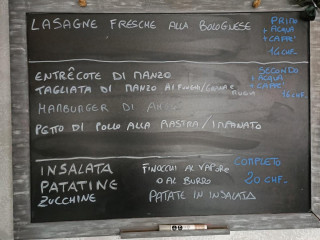 LASAGNE FRESCHE ALLA BOLOGNESE
PRIMO
+ ACQUA
+ CAFFE'
14 CHF.-
ENTRÊCOTE DI MANZO
TAGLIATA DI MANZO AI FUNGHI/GRANA E RUCOLA
HAMBURGER DI
PETTO DI POLLO ALLA PIASTRA / IMPANATO
SECONDO
+ ACQUA
+ CAFFE'
16 CHF.
INSALATA
PATATINE
ZUCCHINE
FINOCCHI AL VAPORE
O AL BURRO
PATATE IN INSALATA
COMPLETO
20 CHF.-